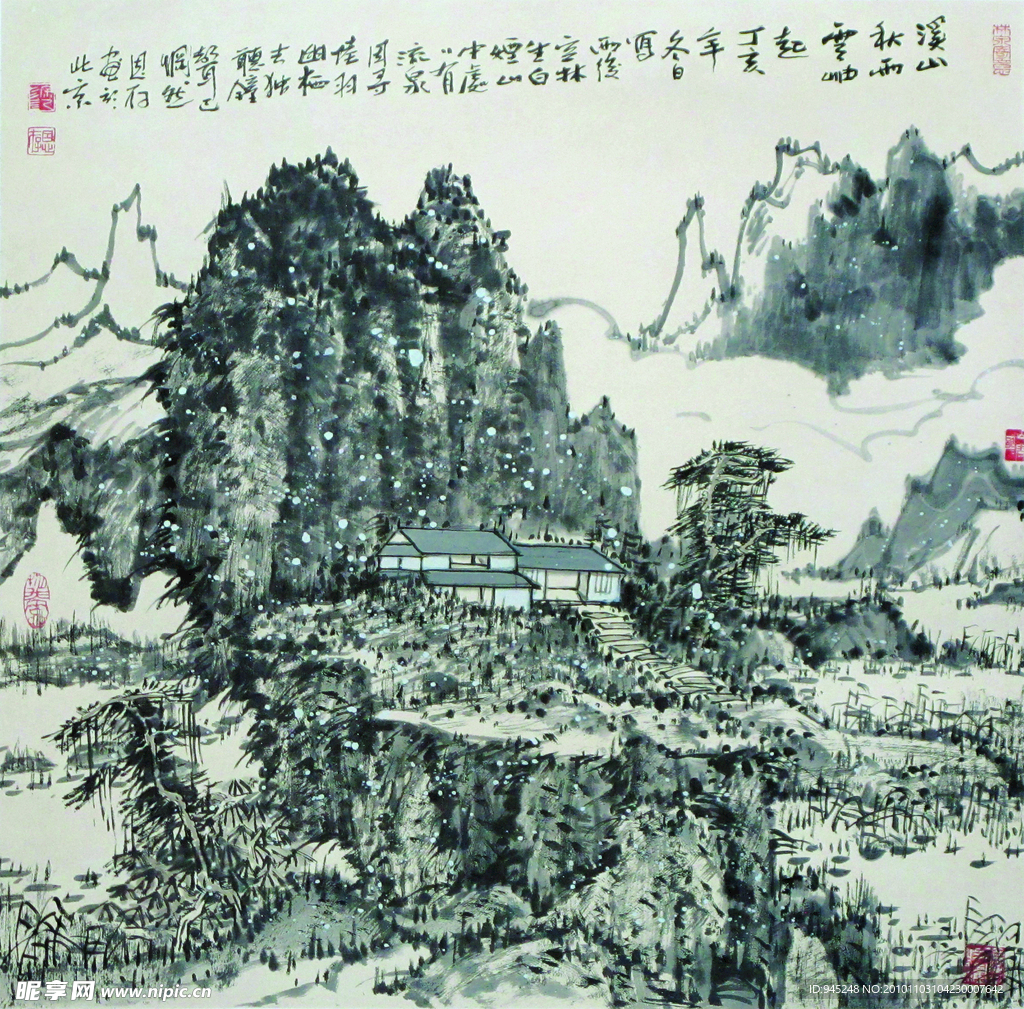 溪山
秋雨
雲岫
起
丁亥
年
冬日
寫
雨後
空林
生白
煙山
中處
〻有
流泉
因寻
陸羽
幽栖
去独
聽鐘
聲已
惘然
恩存
畫於
北京
昵享网 www.nipic.cn
ID:945248 NO:20101103104230007642